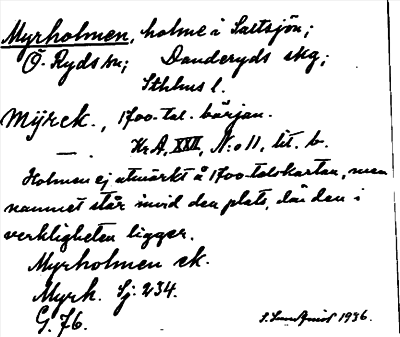 Myrholmen, holme i Saltsjön;
Ö. Ryds sn; Danderyds skg;
Sthlms l.
Mÿrck., 1700-tal. början.
— . Kr A, XXII, N:o 11, lit. b.
Holmen ej utmärkt å 1700-talskartan, men
namnet står invid den plats, där den i
verkligheten ligger.
Myrholmen ek.
Myrh. Sj: 234.
G. 76. 1936.